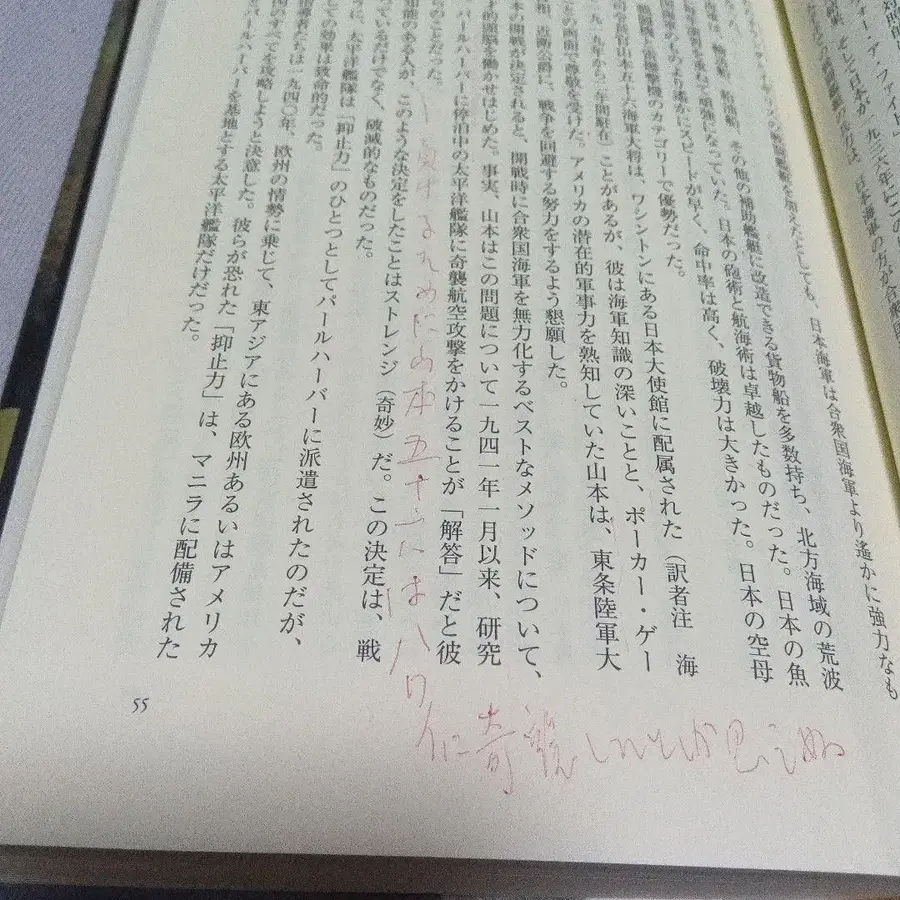 対照的
ォー・ア・ファイト」
そして日本が一九三六年にこの
日本海軍の方が合衆国
を加えたとしても、日本海軍は合衆国海軍より遙かに強力なも
その他の補助艦艇に改造できる貨物船を多数持ち、北方海域の荒波
を重ねて頑強になっていた。日本の砲術と航海術は卓越したものだった。日本の魚
のものより遙かにスピードが早く、命中率は高く、破壊力は大きかった。日本の空母
機のカテゴリーで優勢だった。
司令長官山本五十六海軍大将は、ワシントンにある日本大使館に配属された（訳者注 海
一九一九年から二年間駐在）ことがあるが、彼は海軍知識の深いことと、ポーカー・ゲー
の両面で尊敬を受けた。アメリカの潜在的軍事力を熟知していた山本は、東条陸軍大
相、近衛公爵に、戦争を回避する努力をするよう懇願した。
本の開戦が決定されると、開戦時に合衆国海軍を無力化するベストなメソッドについて、
的頭脳を働かせはじめた。事実、山本はこの問題について一九四一年一月以来、研究
パールハーバーに停泊中の太平洋艦隊に奇襲航空攻撃をかけることが「解答」だと彼
のことだった。
知能のある人が、このような決定をしたことはストレンジ（奇妙）だ。この決定は、戦
っているだけでなく、破滅的なものだった。
うに、太平洋艦隊は「抑止力」のひとつとしてパールハーバーに派遣されたのだが、
しての効果は致命的だった。
者たちは一九四〇年、欧州の情勢に乗じて、東アジアにある欧州あるいはアメリカ
のすべてを攻略しようと決意した。彼らが恐れた「抑止力」は、マニラに配備された
パールハーバーを基地とする太平洋艦隊だけだった。
ために山本五十六は
に奇襲し
55